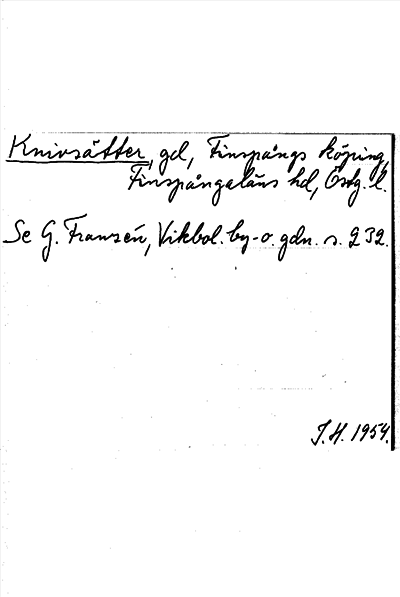 Knivsätter, gd, Finspångs köping,
Finspångaläns hd, Östg. l.
Se G. Franzén, Vikbol. by- o. gdn. s. 232.
J.H. 1954.